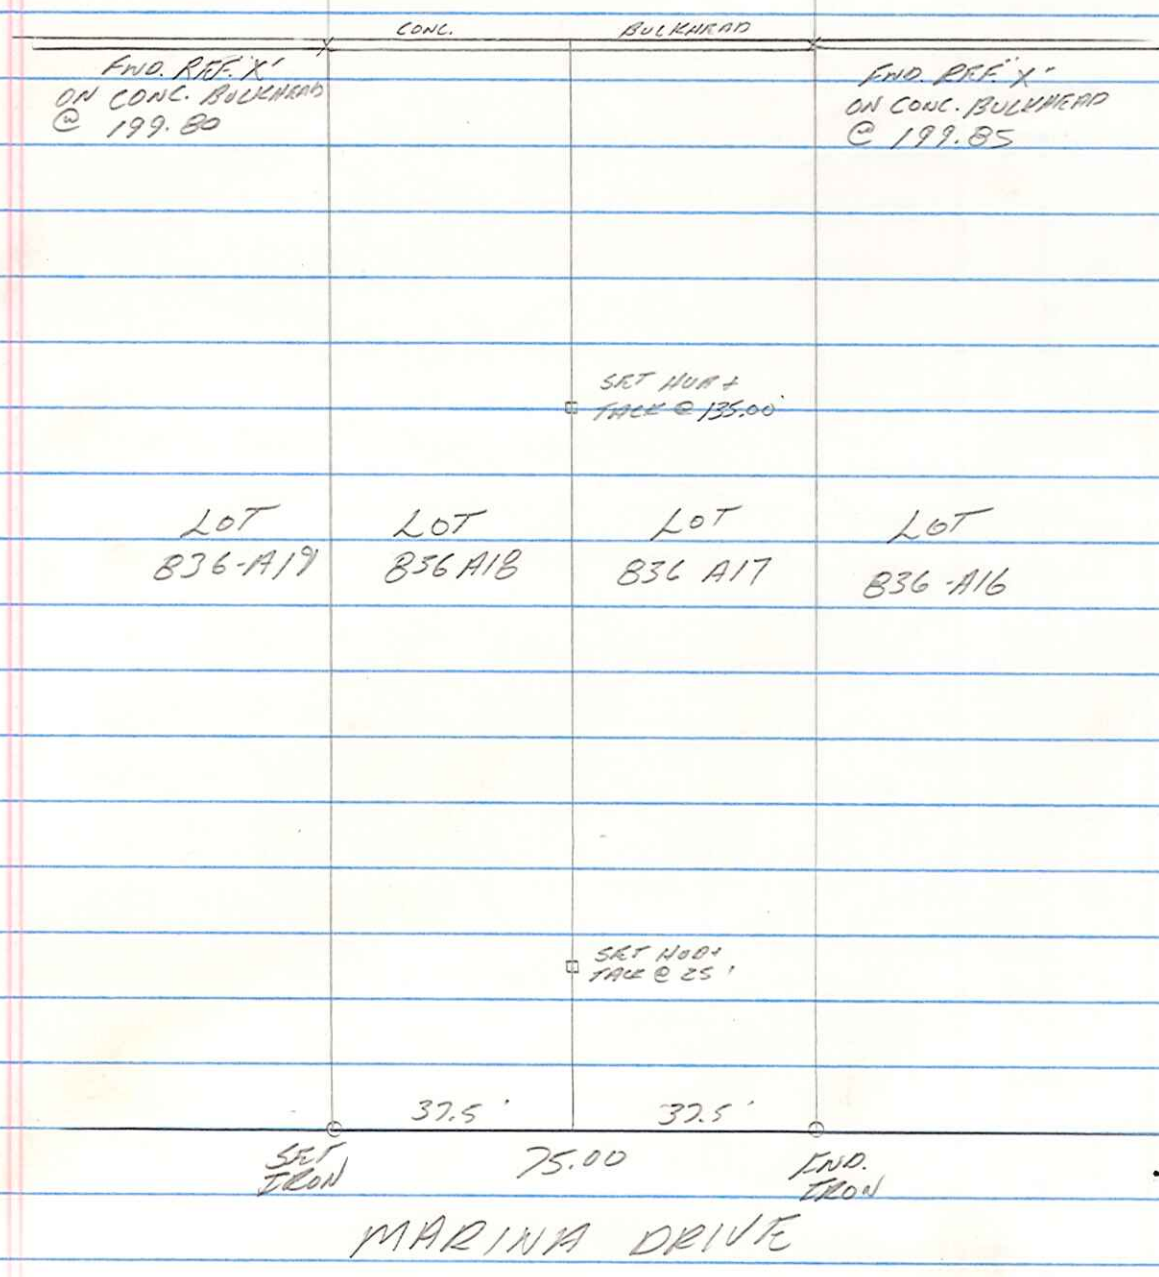 CONC. BULKHEAD
FND. REF. "X"
ON CONC. BULKHEAD
@ 199.80
FND. REF. "X"
ON CONC. BULKHEAD
@ 199.85
SET HUB +
TACK @ 135.00'
LOT
836-A19
LOT
836 A18
LOT
836 A17
LOT
836-A16
SET HUB +
TACK @ 25'
37.5'
37.5'
SET
IRON
75.00
FND.
IRON
MARINA DRIVE